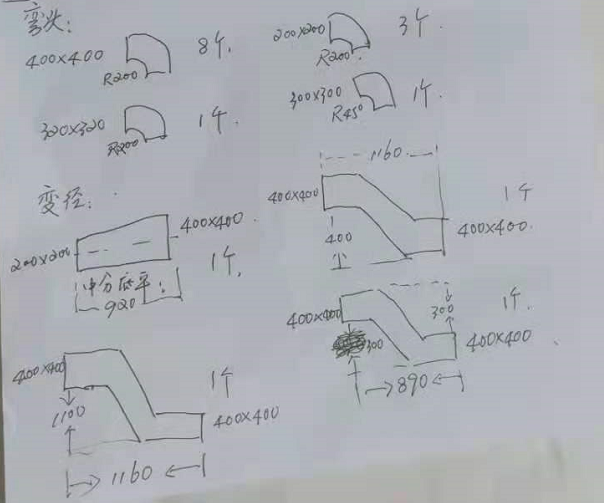 弯头：
400×400 R200 8个.
200×200 R200. 3个.
320×320 R200 1个.
300×300 R45° 1个.
变径：
200×200 400×400. 1个.
中分底平：
920
1160
400×400 1个
400 400×400.
400×400 300 1个.
300 400×400
890
400×400 1个
1100 400×400
1160